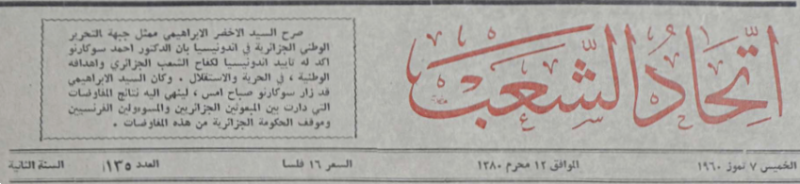 اتّحادُ الشَّعبْ
صرح السيد الاخضر الابراهيمي ممثل جبهة التحرير
الوطني الجزائرية في اندونيسيا بان الدكتور احمد سوكارنو
اكد له تاييد اندونيسيا لكفاح الشعب الجزائري واهدافه
الوطنية ، في الحرية والاستقلال . وكان السيد الابراهيمي
قد زار سوكارنو صباح امس ، لينهي اليه نتائج المفاوضات
التي دارت بين المبعوثين الجزائريين والمسوءولين الفرنسيين
وموقف الحكومة الجزائرية من هذه المفاوضات .
الخميس ٧ تموز ١٩٦٠ الموافق ١٢ محرم ١٣٨٠ السعر ١٦ فلسا العدد ١٣٥ السنة الثانية